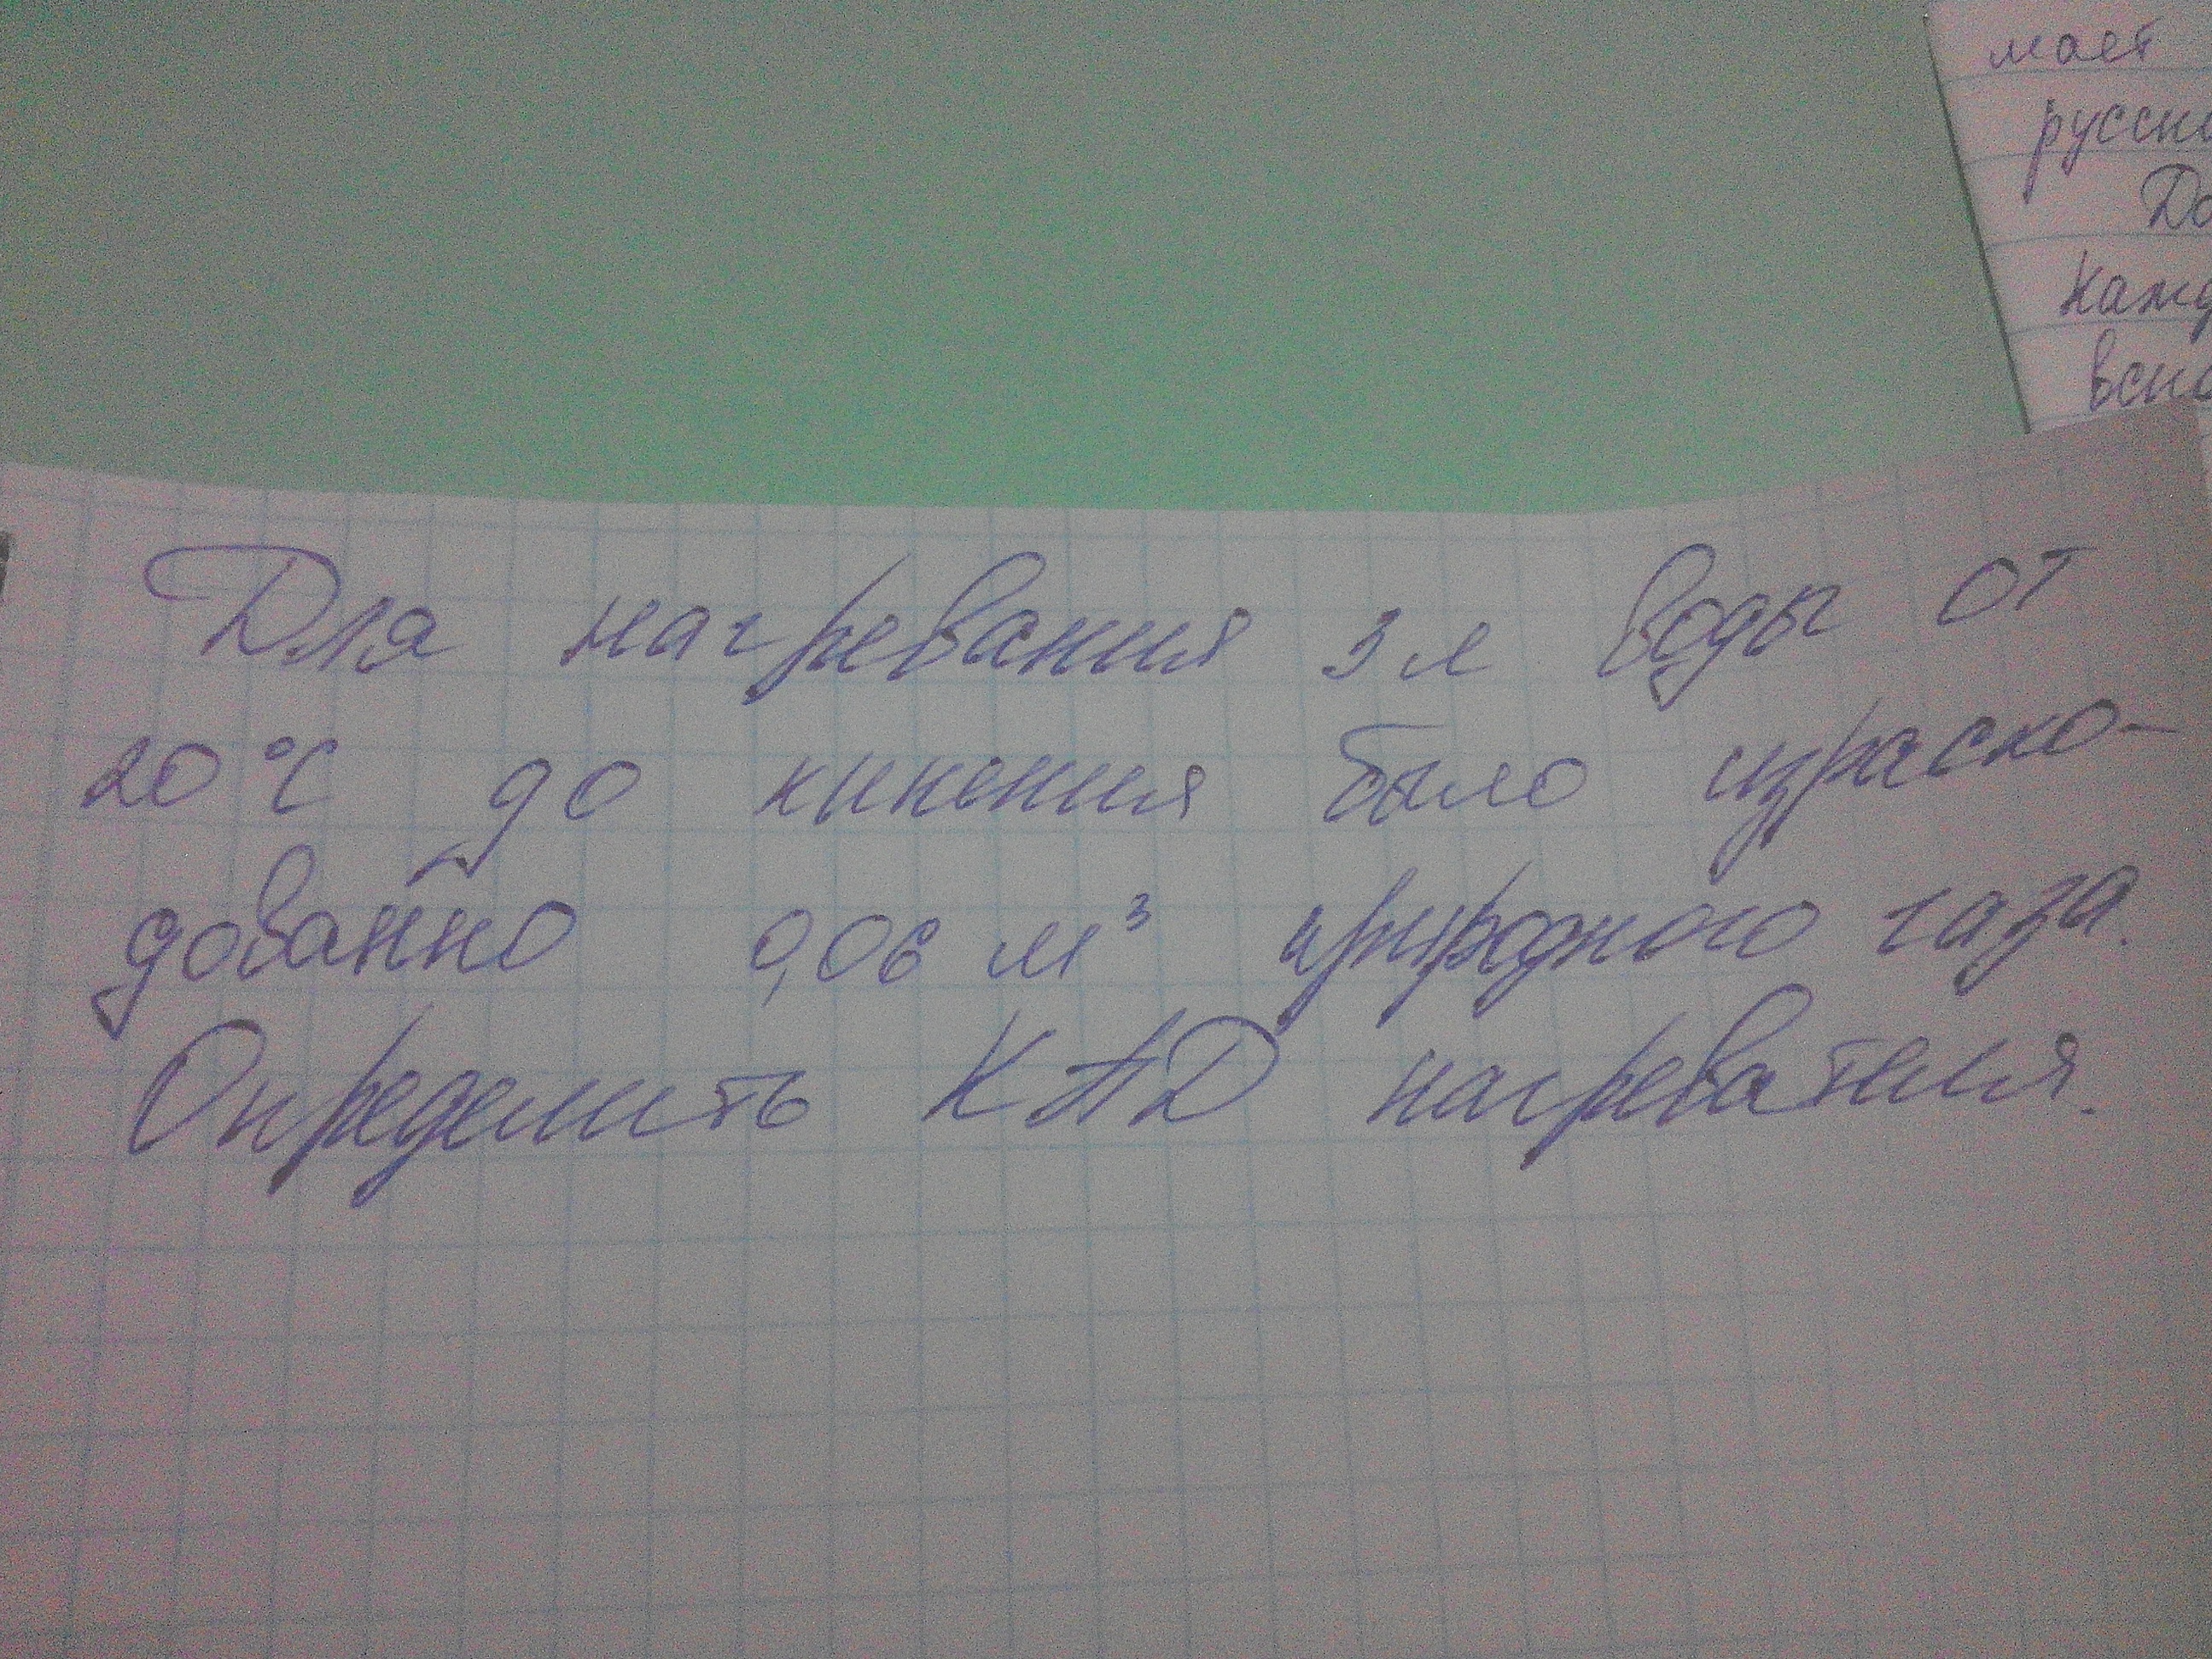 мает
русско
До
Кажд
вспо
Для нагревания 3 л воды от
20 °С до кипения было израсхо-
дованно 0,06 м³ природного газа.
Определить КПД нагревателя.